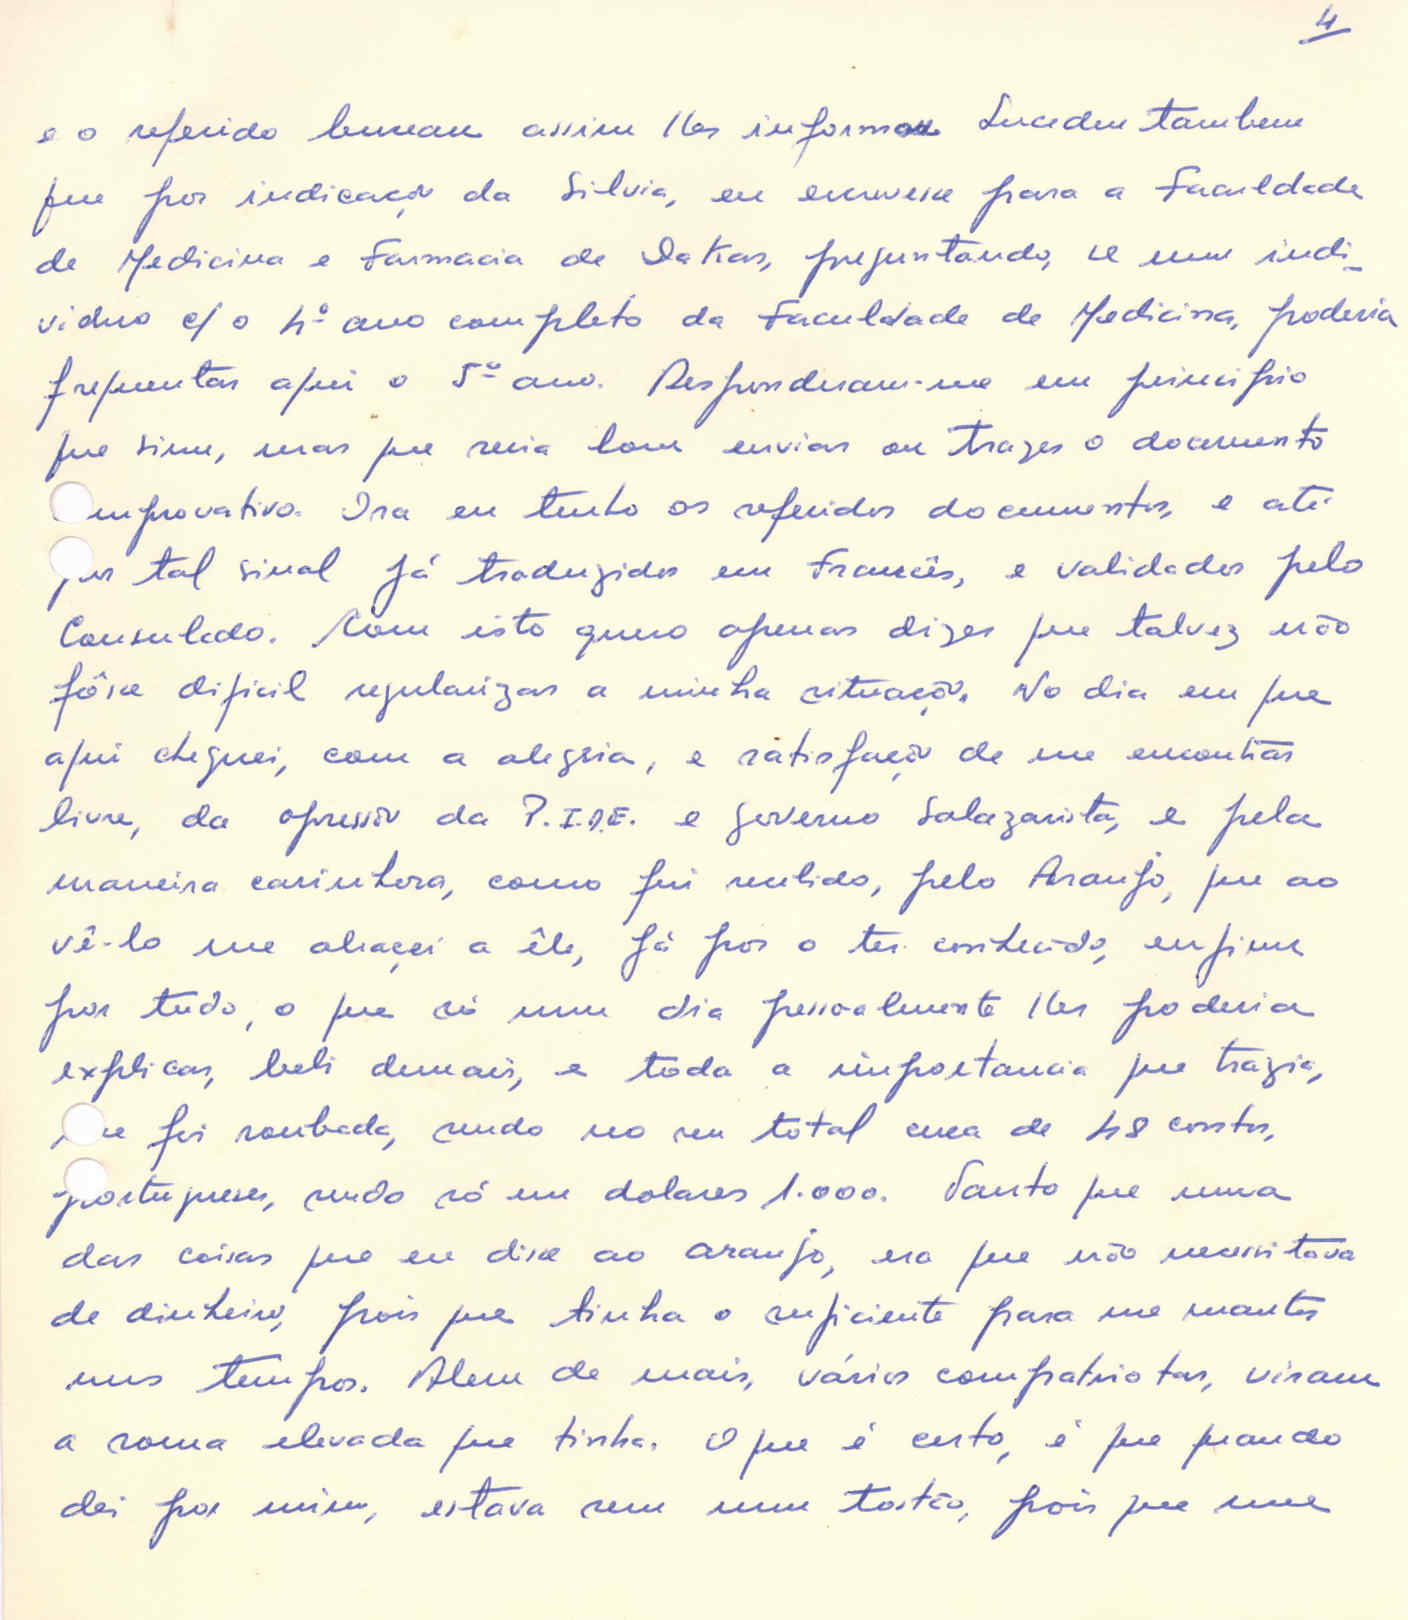 4
e o referido bureau assim lhes informou Sucedeu tambem
que por indicação da Silvia, eu escrevesse para a Faculdade
de Medicina e Farmacia de Dakar, preguntando, se um indi-
viduo c/ o 4º ano completo da Faculdade de Medicina, poderia
frequentar aqui o 5º ano. Responderam-me em principio
que sim, mas que seria bom enviar ou trazer o documento
comprovativo. Ora eu tenho os referidos documentos, e até
por tal sinal já traduzidos em Francês, e validados pelo
Consulado. Com isto quero apenas dizer que talvez não
fôsse dificil regularizar a minha situação. No dia em que
aqui cheguei, com a alegria, e satisfação de me encontrar
livre, da opressão da P.I.D.E. e governo Salazarista, e pela
maneira carinhosa, como fui recebido, pelo Araujo, que ao
vê-lo me abracei a êle, já por o ter conhecido, enfim
por tudo, o que só um dia pessoalmente lhes poderia
explicar, bebi demais, e toda a importancia que trazia,
me foi roubada, sendo no seu total cerca de 48 contos,
portugueses, sendo só em dolares 1.000. Tanto que uma
das coisas que eu disse ao Araujo, era que não necessitava
de dinheiro, pois que tinha o suficiente para me manter
uns tempos. Alem de mais, vários compatriotas, viram
a soma elevada que tinha. O que é certo, é que quando
dei por mim, estava sem um tostão, pois que me